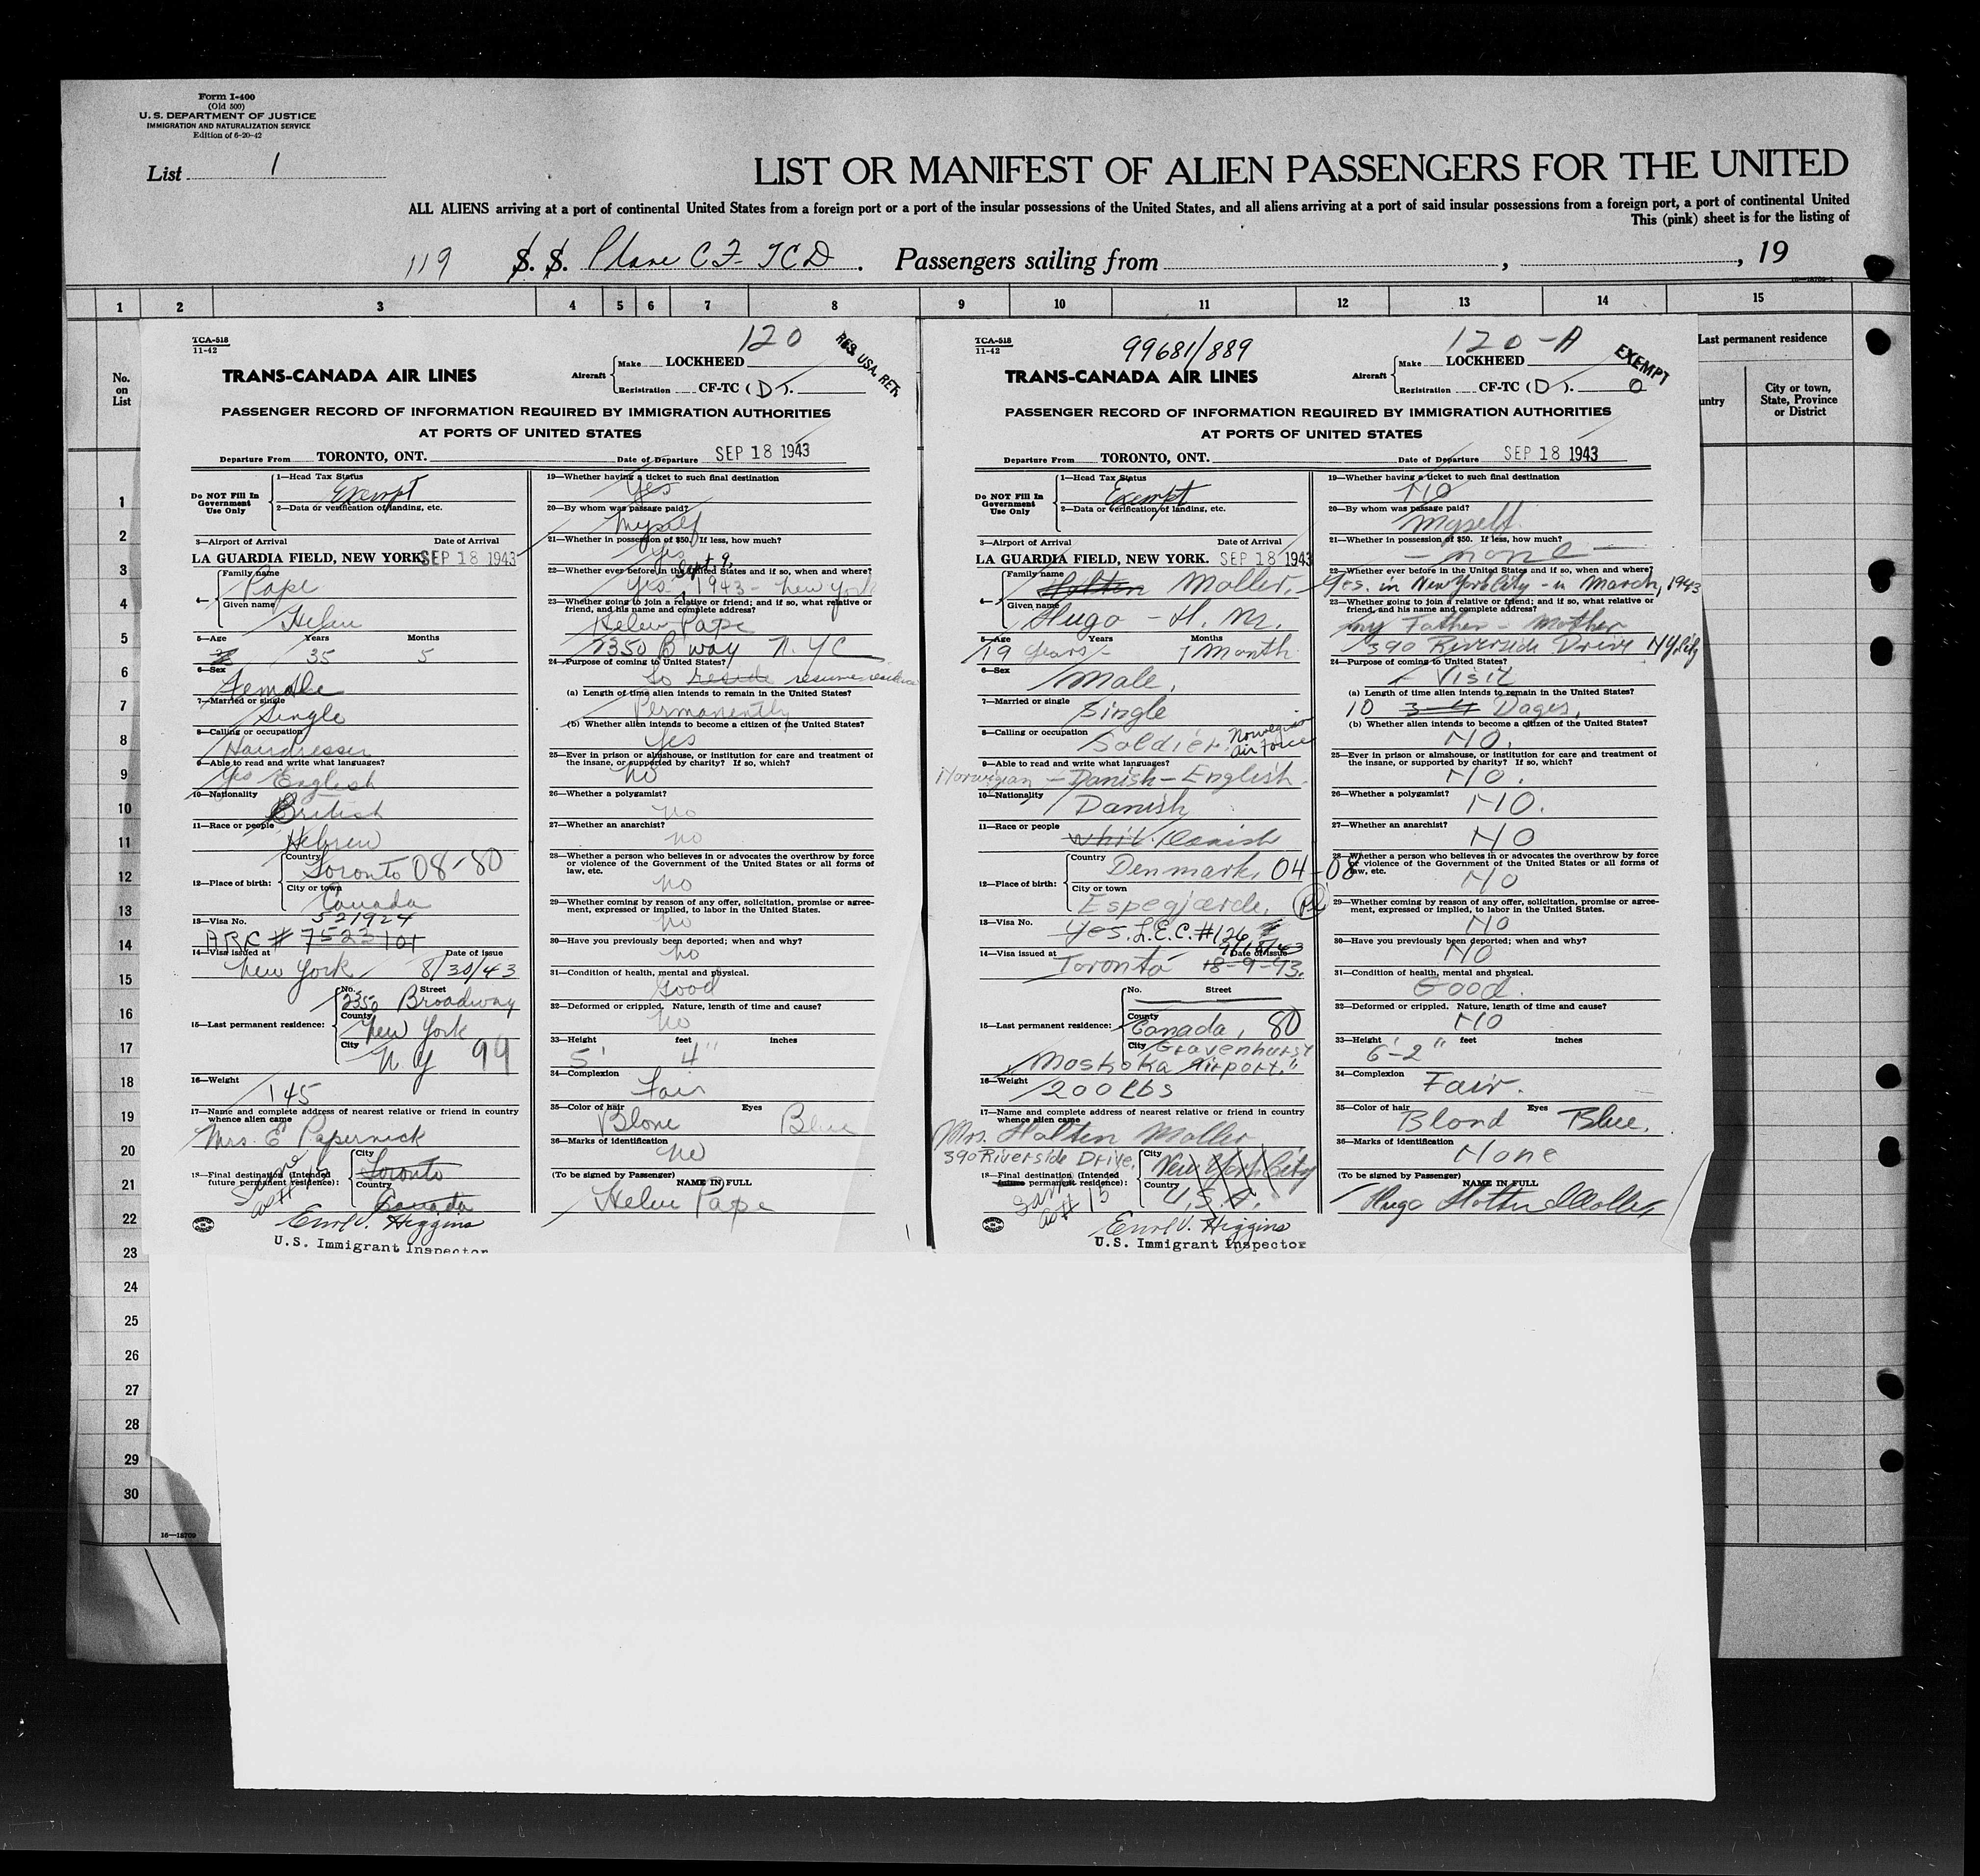 Form I-400
(Old 500)
U. S. DEPARTMENT OF JUSTICE
IMMIGRATION AND NATURALIZATION SERVICE
Edition of 6-20-42
List 1
LIST OR MANIFEST OF ALIEN PASSENGERS FOR THE UNITED
ALL ALIENS arriving at a port of continental United States from a foreign port or a port of the insular possessions of the United States, and all aliens arriving at a port of said insular possessions from a foreign port, a port of continental United
This (pink) sheet is for the listing of
119 S. S. Plane CF-TCD. Passengers sailing from , , 19
1 2 3 4 5 6 7 8 9 10 11 12 13 14 15
No.
on
List
Last permanent residence
untry
City or town,
State, Province
or District
1
2
3
4
5
6
7
8
9
10
11
12
13
14
15
16
17
18
19
20
21
22
23
24
25
26
27
28
29
30
16—18709
TCA-518
11-42
120
RES. USA. RET.
TRANS-CANADA AIR LINES
Aircraft
Make LOCKHEED
Registration CF-TC (D).
PASSENGER RECORD OF INFORMATION REQUIRED BY IMMIGRATION AUTHORITIES
AT PORTS OF UNITED STATES
Departure From TORONTO, ONT. Date of Departure SEP 18 1943
Do NOT Fill In
Government
Use Only
1—Head Tax Status
Exempt
2—Data or verification of landing, etc.
3—Airport of Arrival Date of Arrival
LA GUARDIA FIELD, NEW YORK. SEP 18 1943
4—
Family name
Pape
Given name
Helen
5—Age Years Months
35 5
6—Sex
Female
7—Married or single
Single
8—Calling or occupation
Hairdresser
9—Able to read and write what languages?
Yes English
10—Nationality
British
11—Race or people
Hebrew
12—Place of birth:
Country
Toronto 08-80
City or town
Canada
13—Visa No.
521924
ARC # 7523101
14—Visa issued at Date of issue
New York 8/30/43
15—Last permanent residence:
No. Street
2350 Broadway
County
New York
City
N.Y 99
16—Weight
145
17—Name and complete address of nearest relative or friend in country
whence alien came
Mrs. E Papernick
18—Final destination (Intended
future permanent residence):
Same
as # 15
City
Toronto
Country
Canada
Errol V. Higgins
U.S. Immigrant Inspector
19—Whether having a ticket to such final destination
Yes
20—By whom was passage paid?
Myself
21—Whether in possession of $50. If less, how much?
Yes
22—Whether ever before in the United States and if so, when and where?
Yes Sept 9, 1943 - New York
23—Whether going to join a relative or friend; and if so, what relative or
friend, and his name and complete address?
Helen Pape
2350 B'way N.YC
24—Purpose of coming to United States?
To reside resume residence
(a) Length of time alien intends to remain in the United States?
Permanently
(b) Whether alien intends to become a citizen of the United States?
Yes
25—Ever in prison or almshouse, or institution for care and treatment of
the insane, or supported by charity? If so, which?
No
26—Whether a polygamist?
no
27—Whether an anarchist?
no
28—Whether a person who believes in or advocates the overthrow by force
or violence of the Government of the United States or all forms of
law, etc.
no
29—Whether coming by reason of any offer, solicitation, promise or agree-
ment, expressed or implied, to labor in the United States.
no
30—Have you previously been deported; when and why?
no
31—Condition of health, mental and physical.
Good
32—Deformed or crippled. Nature, length of time and cause?
no
33—Height feet inches
5' 4"
34—Complexion
Fair
35—Color of hair Eyes
Blone Blue
36—Marks of identification
no
(To be signed by Passenger) NAME IN FULL
Helen Pape
TCA-518
11-42
99681/889
120-A
EXEMPT
TRANS-CANADA AIR LINES
Aircraft
Make LOCKHEED
Registration CF-TC (D). 0
PASSENGER RECORD OF INFORMATION REQUIRED BY IMMIGRATION AUTHORITIES
AT PORTS OF UNITED STATES
Departure From TORONTO, ONT. Date of Departure SEP 18 1943
Do NOT Fill In
Government
Use Only
1—Head Tax Status
Exempt
2—Data or verification of landing, etc.
3—Airport of Arrival Date of Arrival
LA GUARDIA FIELD, NEW YORK. SEP 18 1943
4—
Family name
Holten Moller.
Given name
Hugo - H. M.
5—Age Years Months
19 years - 1 month
6—Sex
Male.
7—Married or single
Single
8—Calling or occupation
Soldier. Norwegian
Air Force
9—Able to read and write what languages?
Norwigian - Danish - English.
10—Nationality
Danish
11—Race or people
whit. Danish
12—Place of birth:
Country
Denmark. 04-08
City or town
Espegjærde.
13—Visa No.
Yes. L.E.C. #126
14—Visa issued at Date of issue
9/18/43
Toronto 18-9-43.
15—Last permanent residence:
No. Street
County
Canada, 80
City
Gravenhurst
Moskoka Airport."
16—Weight
200 Lbs
17—Name and complete address of nearest relative or friend in country
whence alien came
Mrs. Holten Moller
390 Riverside Drive.
18—Final destination (Intended
future permanent residence):
Same
as # 15
City
New York City
Country
U.S.A.
Errol V. Higgins
U.S. Immigrant Inspector
19—Whether having a ticket to such final destination
NO
20—By whom was passage paid?
Myself.
21—Whether in possession of $50. If less, how much?
- none -
22—Whether ever before in the United States and if so, when and where?
Yes. in New York City - in March, 1943
23—Whether going to join a relative or friend; and if so, what relative or
friend, and his name and complete address?
my Father - Mother
390 Riverside Drive NY. City
24—Purpose of coming to United States?
- Visit
(a) Length of time alien intends to remain in the United States?
10 3-4 Dages,
(b) Whether alien intends to become a citizen of the United States?
NO.
25—Ever in prison or almshouse, or institution for care and treatment of
the insane, or supported by charity? If so, which?
NO.
26—Whether a polygamist?
NO.
27—Whether an anarchist?
NO
28—Whether a person who believes in or advocates the overthrow by force
or violence of the Government of the United States or all forms of
law, etc.
NO
29—Whether coming by reason of any offer, solicitation, promise or agree-
ment, expressed or implied, to labor in the United States.
NO
30—Have you previously been deported; when and why?
NO
31—Condition of health, mental and physical.
Good.
32—Deformed or crippled. Nature, length of time and cause?
NO
33—Height feet inches
6'-2"
34—Complexion
Fair.
35—Color of hair Eyes
Blond Blue.
36—Marks of identification
None
(To be signed by Passenger) NAME IN FULL
Hugo Holten Moller